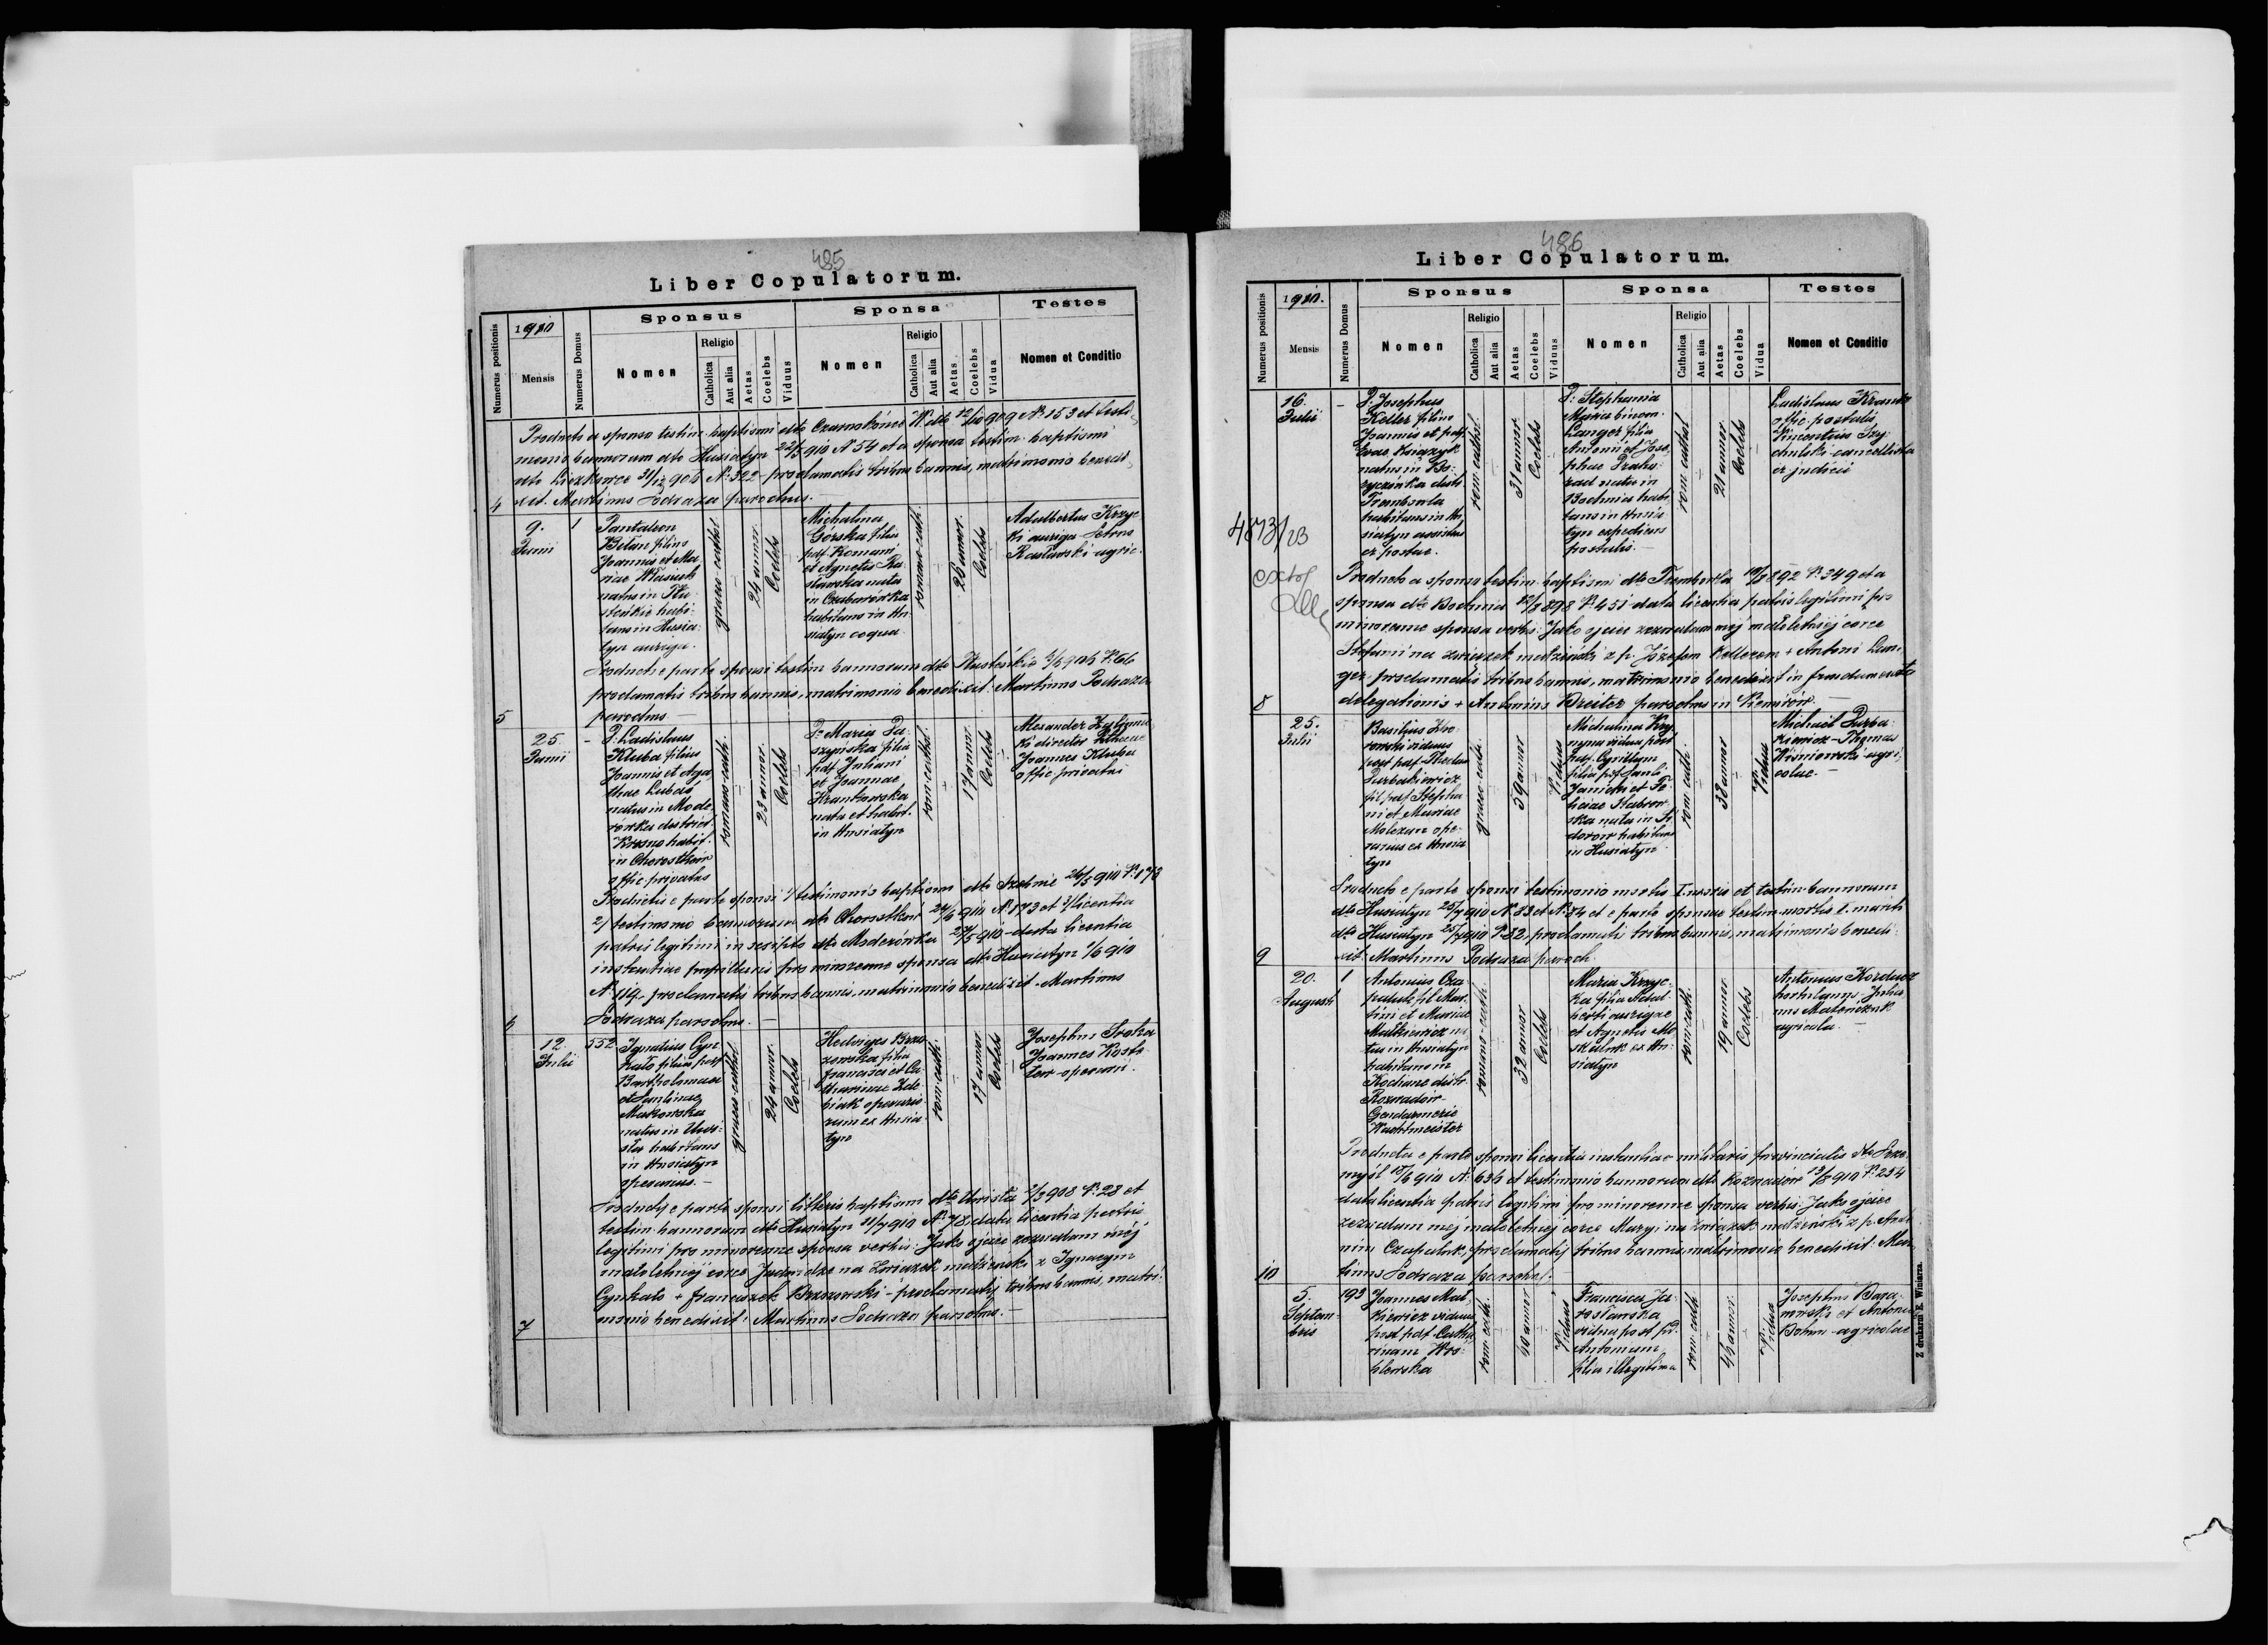 485
Liber Copulatorum.
Numerus positionis
1910
Mensis
Numerus Domus
Sponsus
Nomen
Religio
Catholica
Aut alia
Aetas
Coelebs
Viduus
Sponsa
Nomen
Religio
Catholica
Aut alia
Aetas
Coelebs
Vidua
Testes
Nomen et Conditio
Producto a sponso testim. baptismi dto Czarnokońce W. dto 12/10 909 N. 153 et testi
monio bannorum dto Husiatyn 22/5 910 N 54 et a sponsa testim. baptismi
dto Liczkowce 31/12 906 N. 322 - proclamatis tribus bannis, matrimonio benedi
xit. Martinus Podraza parochus.
4
9.
Junii
1
Pantaleon
Bilan filius
Joannis et Ma
riae Wasiuk
natus in
habi
tans in Husia
tyn auriga.
graeco-cathol.
24 annor.
Coelebs
Michalina
Górska filia
pdf. Romani
et Agnetis Ra
sławska nata
in Czabarówka
habitans in Hu
siatyn coqua
romano-cath.
26 annor.
Coelebs
Adalbertus Krzyc
ki auriga - Petrus
Rasławski - agric.
Producto e parte sponsi testim. bannorum dto
proclamatis tribus bannis, matrimonio benedixit: Martinus Podraza
parochus
5
25.
Junii
-
P. Ladislaus
Kluba filius
Joannis et Aga
thae Lubaś
natus in Mode
rówka district.
Krosno habit.
in Chorostków
offic. privatus
romano-cath.
23 annor.
Coelebs
P. Maria Da
szyńska filia
pdf. Juliani
et Joannae
Krankowska
nata et habit.
in Husiatyn
rom-cathol.
17 annor.
Coelebs
Alexander
ki director
Joannes Kluba
offic. privatus
Productis e parte sponsi 1/ testimonio baptismi dto Szebnie 26/5 910 N. 173
2/ testimonio bannorum dto Chorostków 24/6 910 N 173 et 3/ licentia
patris legitimi in scripto dto Moderówka 27/5 910 - data licentia
instantiae pupillaris pro minorenne sponsa dto Husiatyn 1/6 910
N. 119. - proclamatis tribus bannis, matrimonio benedixit - Martinus
Podraza parochus. -
6
12.
Julii
552
Ignatius Cyn
kało filius pdf
Bartholomaei
et Paulinae
Makowska
natus in Uwi
sła habitans
in Husiatyn
operarius. -
graeco-cathol.
24 annor.
Coelebs
Hedviges Brzo
zowska filia
Francisci et Ca
tharinae
operario
rum ex Husia
tyn
rom-cath.
17 annor.
Coelebs
Josephus Sroka
Joannes
operarii.
Productis e parte sponsi litteris baptismi dto Uwisła 2/3 908 N. 28 et
testim. bannorum dto Husiatyn 11/7 910 N. 78, data licentia patris
legitimi pro minorenne sponsa verbis: Jako ojciec zezwalam méj
małoletniéj córce Jadwidze na związek małżeński z Ignacym
Cynkało + Franciszek Brzozowski - proclamatis tribus bannis, matri
monio benedixit: Martinus Podraza parochus. -
7
486
Liber Copulatorum.
Numerus positionis
1910.
Mensis
Numerus Domus
Sponsus
Nomen
Religio
Catholica
Aut alia
Aetas
Coelebs
Viduus
Sponsa
Nomen
Religio
Catholica
Aut alia
Aetas
Coelebs
Vidua
Testes
Nomen et Conditio
16.
Julii
-
P. Josephus
Keller filius
Joannis et pdf.
Evae Książyk
natus in Bo
ryczówka distr.
Trembowla
habitans in Hu
siatyn assistens
ex postae.
rom-cathol.
31 annor.
Coelebs
P. Stephania
Maria binom.
Langer filia
Antonii et Jose
phae
nata in
Bochnia habi
tans in Husia
tyn expediens
postalis. -
rom-cathol.
21 annor.
Coelebs
Ladislaus
offic. postalis
Vincentius Szy
chulski - cancellista
ex judicii
4873/23
Producto a sponso testim. baptismi dto Trembowla 892 N. 349 et a
sponsa dto Bochnia 12/8 898 N. 451 - data licentia patris legitimi pro
minorenne sponsa verbis: Jako ojciec zezwalam méj małoletniéj córce
Stefanii na związek małżeński z p. Józefem Kellerem + Antoni Lan
ger - proclamatis tribus bannis, matrimonio benedixit in fundamento
delegationis + Antonius Breiter parochus in Niemirów -
8
25.
Julii
Basilius
viduus
post pdf. Theclam
Purbakiewicz
fil. pdf. Stepha
ni et Mariae
Molczan ope
rarius ex Husia
tyn
graeco-cath.
59 annor
Viduus
Michalina
vidua post
pdf. Cyrillum
filia pdf. Pauli
Janicki et Fe
liciae
nata in Si
dorów habitans
in Husiatyn
rom-cath.
38 annor
Vidua
Michael Purba
kiewicz - Thomas
Wiśniowski - agri
colae. -
Producto e parte sponsi testimonio mortis I. uxoris et testim. bannorum
dto Husiatyn 25/7 910 N 83 et N. 84 et e parte sponsae testim. mortis I. mariti
dto Husiatyn 25/7 910 N. 82, proclamatis tribus bannis, matrimonio benedi
xit: Martinus Podraza paroch.
9
20.
Augusti
1
Antonius Cza
paluk fil. Mar
tini et Mariae
Małkiewicz na
tus in Husiatyn
habitans in
Kochane distr.
Rozwadów
Gendarmerie
Wachtmeister
romano-cath.
32 annor
Coelebs
Maria Krzyc
ka filia Adal
berti aurigae
et Agnetis
ex Hu
siatyn
rom-cath.
19 annor
Coelebs
Antonius
hortulanus - Julia
nus
agricola. -
Producta e parte sponsi licentia instantiae militaris provincialis dto Prze
myśl 18/6 910 N. 636 et testimonio bannorum dto Rozwadów 13/8 910 N. 234
data licentia patris legitimi pro minorenne sponsa verbis: Jako ojciec
zezwalam méj małoletniéj córce Maryi na związek małżeński z p. Anto
nim Czapaluk, proclamatis tribus bannis, matrimonio benedixit: Mar
tinus Podraza paroch. -
10
5.
Septem
bris
193
Joannes Mał
kiewicz viduus
post pdf. Catha
rinam Wró
blewska
rom-cath.
40 annor
Viduus
Francisca Ja
rosławska
vidua post pd.
Antonium
filia illegitima
rom-cath
46 annor.
Vidua
Josephus Bara
nowski et Antonius
Bohun - agricolae
Z drukarni E. Winiarza.